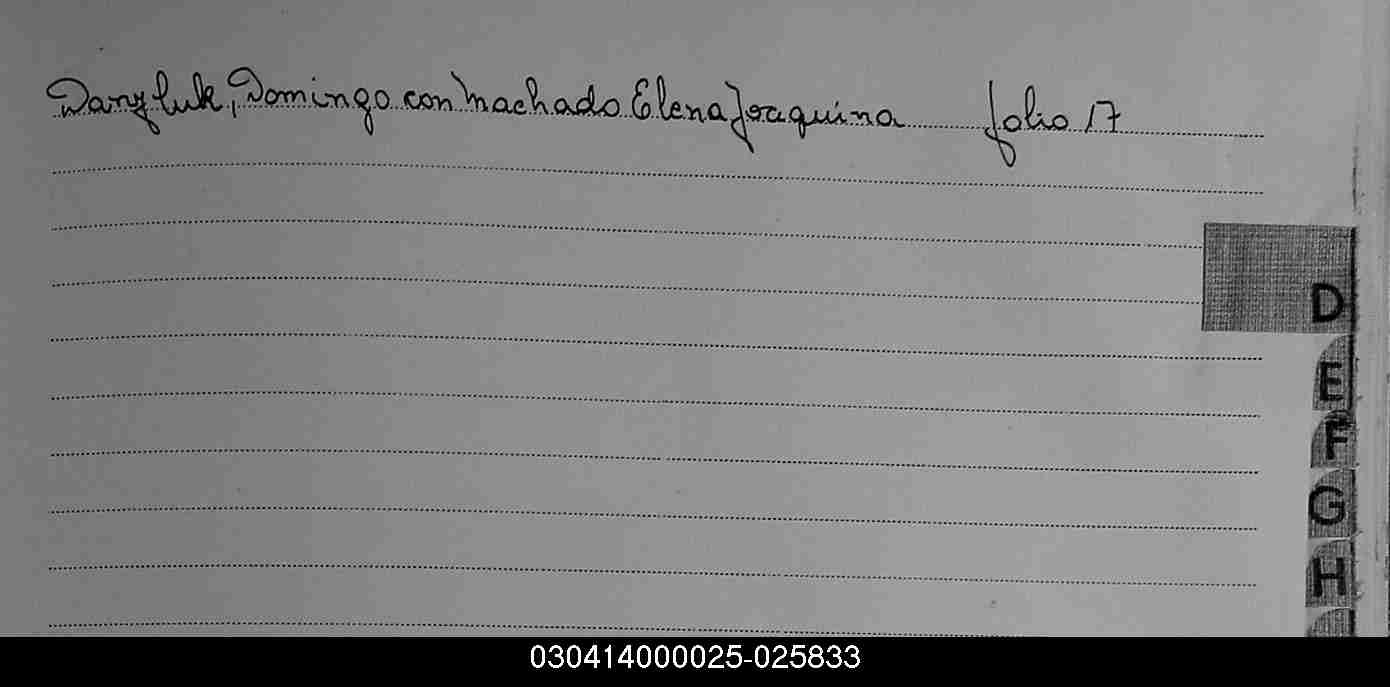 Danyluk, Domingo con Machado Elena Joaquina folio 17
D
E
F
G
H
030414000025-025833